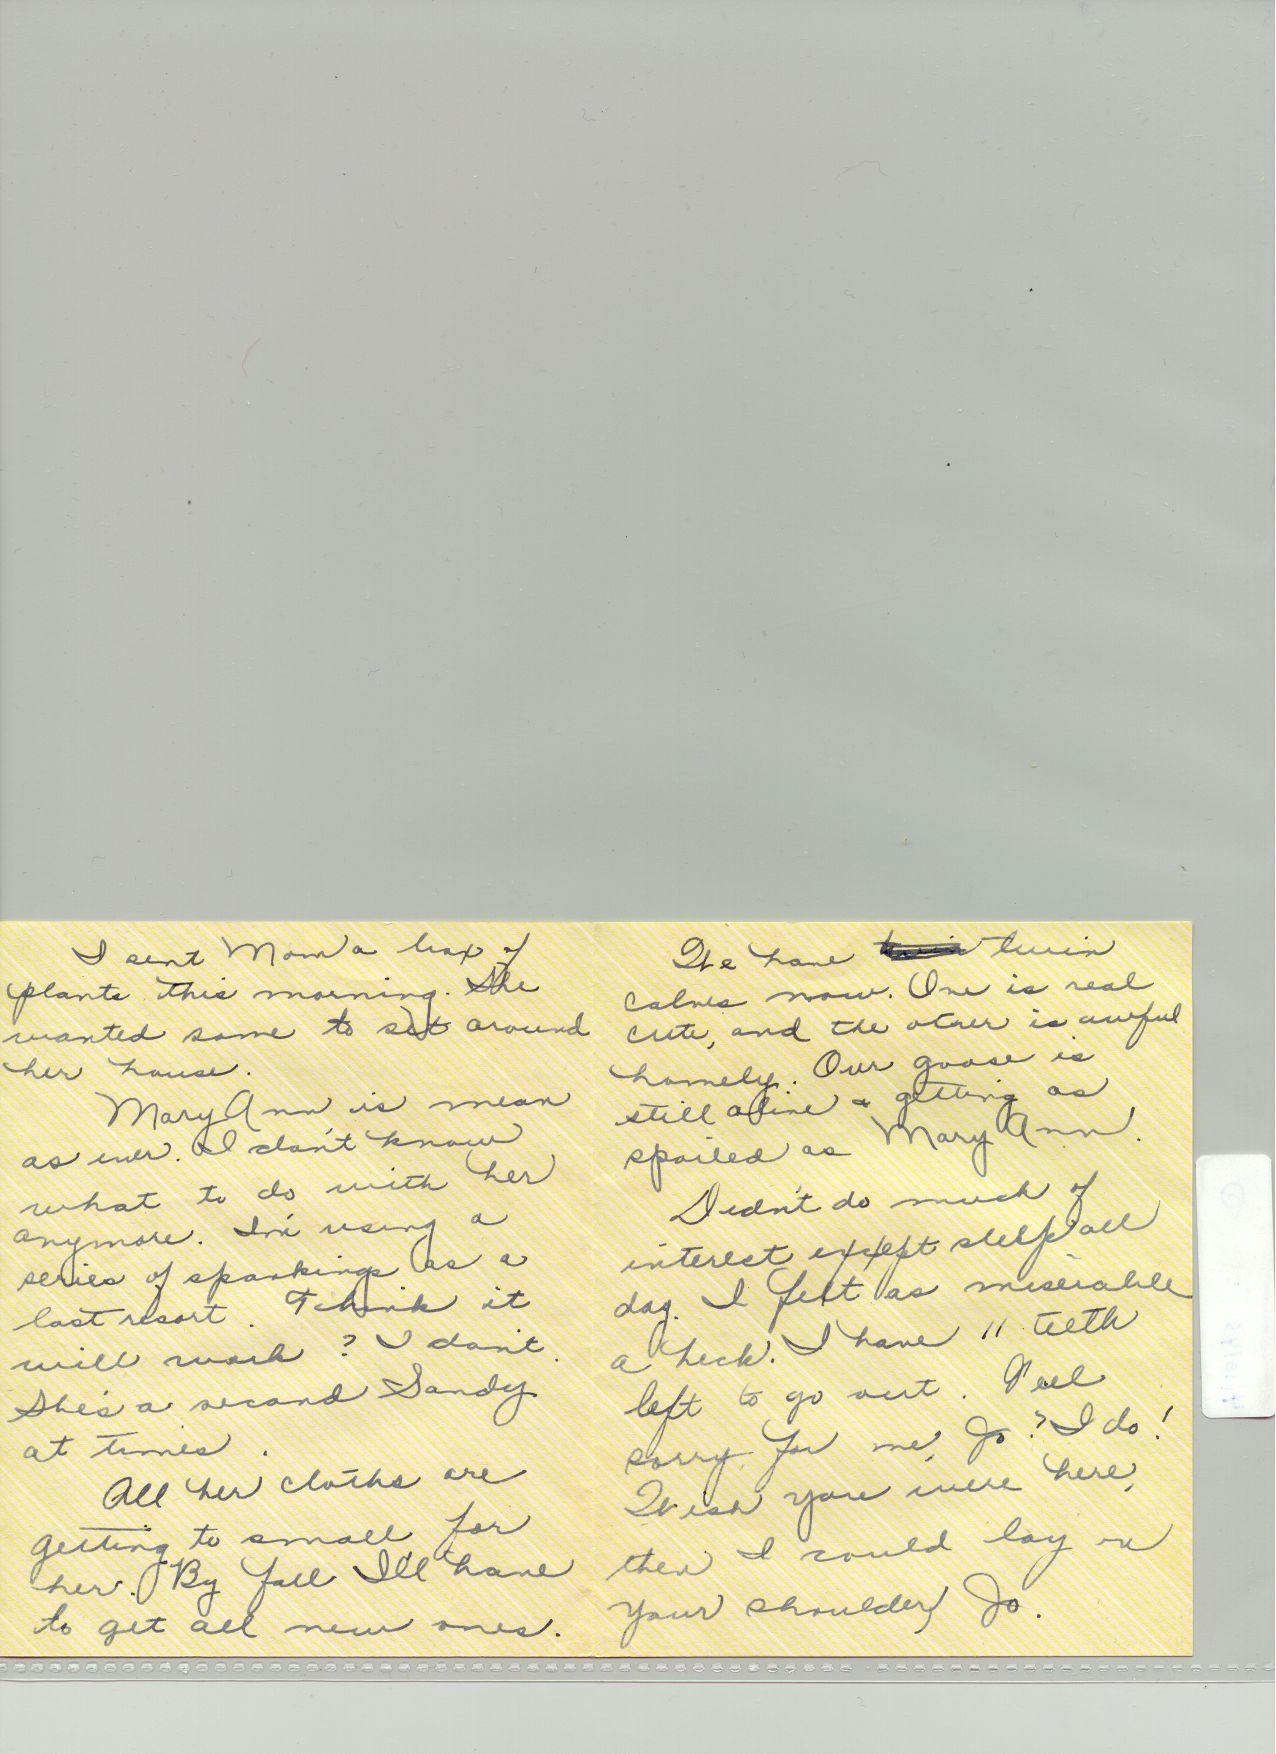 I sent Mom a box of
plants this morning. She
wanted some to set around
her house.
Mary Ann is mean
as ever. I don't know
what to do with her
anymore. I'm using a
series of spankings as a
last resort. Think it
will work? I don't.
She's a second Sandy
at times.
All her cloths are
getting to small for
her. By fall I'll have
to get all new ones.
We have twin
calves now. One is real
cute, and the other is awful
homely. Our goose is
still alive & getting as
spoiled as Mary Ann.
Didn't do much of
interest except sleep all
day. I felt as miserable
a heck. I have 11 teeth
left to go out. Feel
sorry for me, Jo? I do!
Wish you were here,
then I could lay on
your shoulder, Jo.